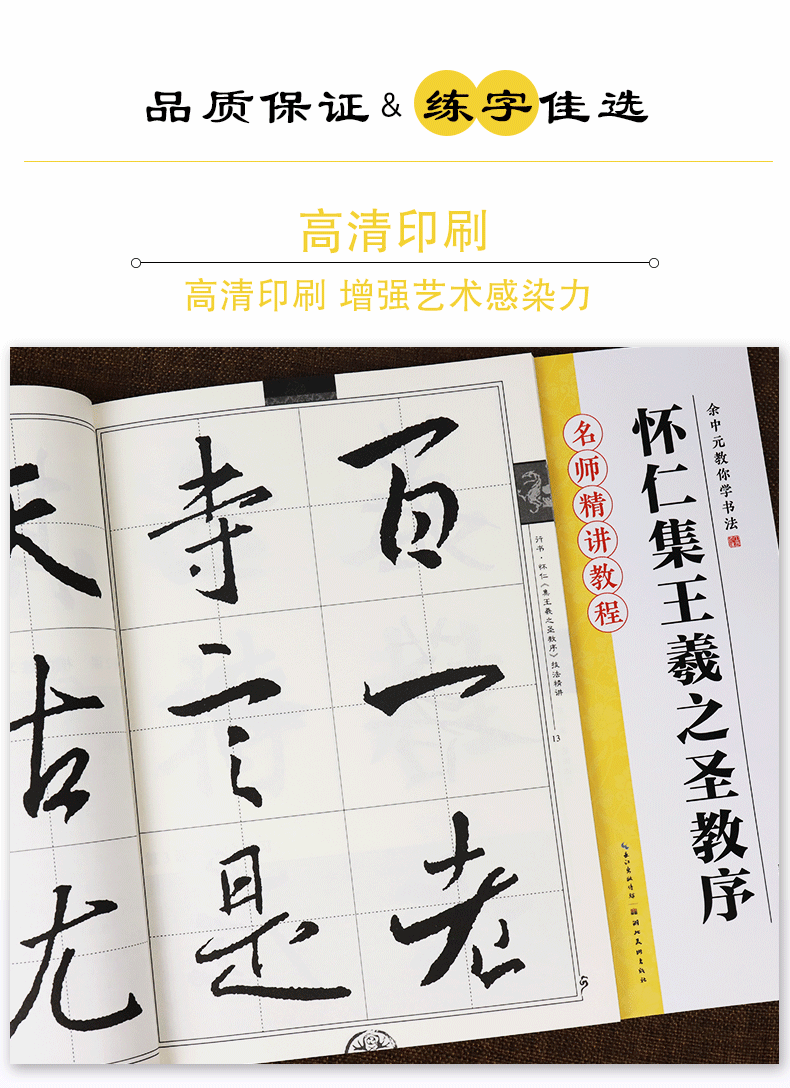 品质保证&练字佳选
高清印刷
高清印刷 增强艺术感染力
百
一
老
是
古
尤
行书·怀仁《集王羲之圣教序》技法精讲
13
名师精讲教程
余中元教你学书法
怀仁集王羲之圣教序
长江出版传媒
湖北美术出版社